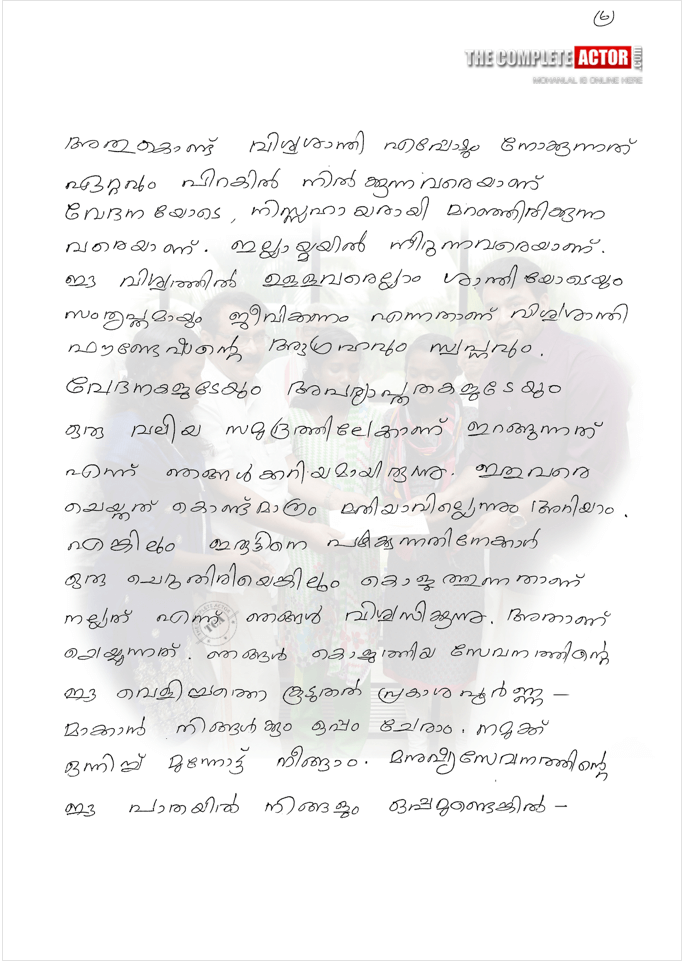 (6)
THE COMPLETE ACTOR .COM
MOHANLAL IS ONLINE HERE
അതുകൊണ്ട് വിശ്വശാന്തി എപ്പോഴും നോക്കുന്നത്
ഏറ്റവും പിറകിൽ നിൽക്കുന്നവരെയാണ്
വേദനയോടെ, നിസ്സഹായരായി മറഞ്ഞിരിക്കുന്ന
വരെയാണ്. ഇല്ലായ്മയിൽ നീറുന്നവരെയാണ്.
ഈ വിശ്വത്തിൽ ഉള്ളവരെല്ലാം ശാന്തിയോടെയും
സംതൃപ്തമായും ജീവിക്കണം എന്നതാണ് വിശ്വശാന്തി
ഫൗണ്ടേഷന്റെ ആഗ്രഹവും സ്വപ്നവും.
വേദനകളുടേയും അപര്യാപ്തതകളുടേയും
ഒരു വലിയ സമുദ്രത്തിലേക്കാണ് ഇറങ്ങുന്നത്
എന്ന് ഞങ്ങൾക്കറിയാമായിരുന്നു. ഇതുവരെ
ചെയ്തത് കൊണ്ട് മാത്രം മതിയാവില്ലെന്നും അറിയാം.
എങ്കിലും ഇരുട്ടിനെ പഴിക്കുന്നതിനേക്കാൾ
ഒരു ചെറുതിരിയെങ്കിലും കൊളുത്തുന്നതാണ്
നല്ലത് എന്ന് ഞങ്ങൾ വിശ്വസിക്കുന്നു. അതാണ്
ചെയ്യുന്നത്. ഞങ്ങൾ കൊളുത്തിയ സേവനത്തിന്റെ
ഈ വെളിച്ചത്തെ കൂടുതൽ പ്രകാശപൂർണ്ണ –
മാക്കാൻ നിങ്ങൾക്കും ഒപ്പം ചേരാം. നമുക്ക്
ഒന്നിച്ച് മുന്നോട്ട് നീങ്ങാം. മനുഷ്യസേവനത്തിന്റെ
ഈ പാതയിൽ നിങ്ങളും ഒപ്പമുണ്ടെങ്കിൽ –